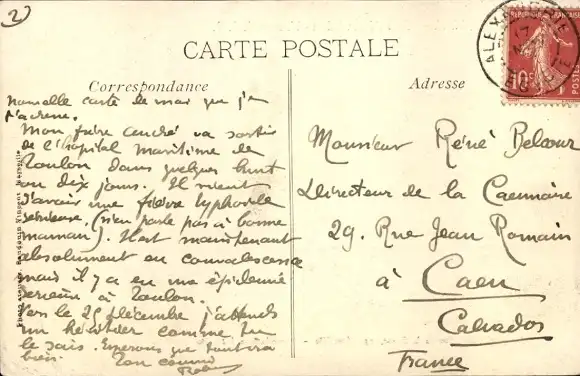 2)
CARTE POSTALE
Correspondance
Adresse
ALEXANDRIE
17
10c
POSTES
nouvelle carte de moi que je
t'adresse.
Mon frère André va sortir
de l'hôpital maritime de
Toulon dans quelques huit
ou dix jours. Il vient
d'avoir une fièvre typhoïde
sérieuse. (n'en parle pas à bonne
maman). Il est maintenant
absolument en convalescence
mais il y a eu une épidémie
sérieuse à Toulon.
Vers le 25 décembre j'attends
un héritier comme tu
le sais. Espérons que tout ira
bien.
Ton cousin
Monsieur René Belcour
Directeur de la Caennaise
29. Rue Jean Romain
à Caen
Calvados
France